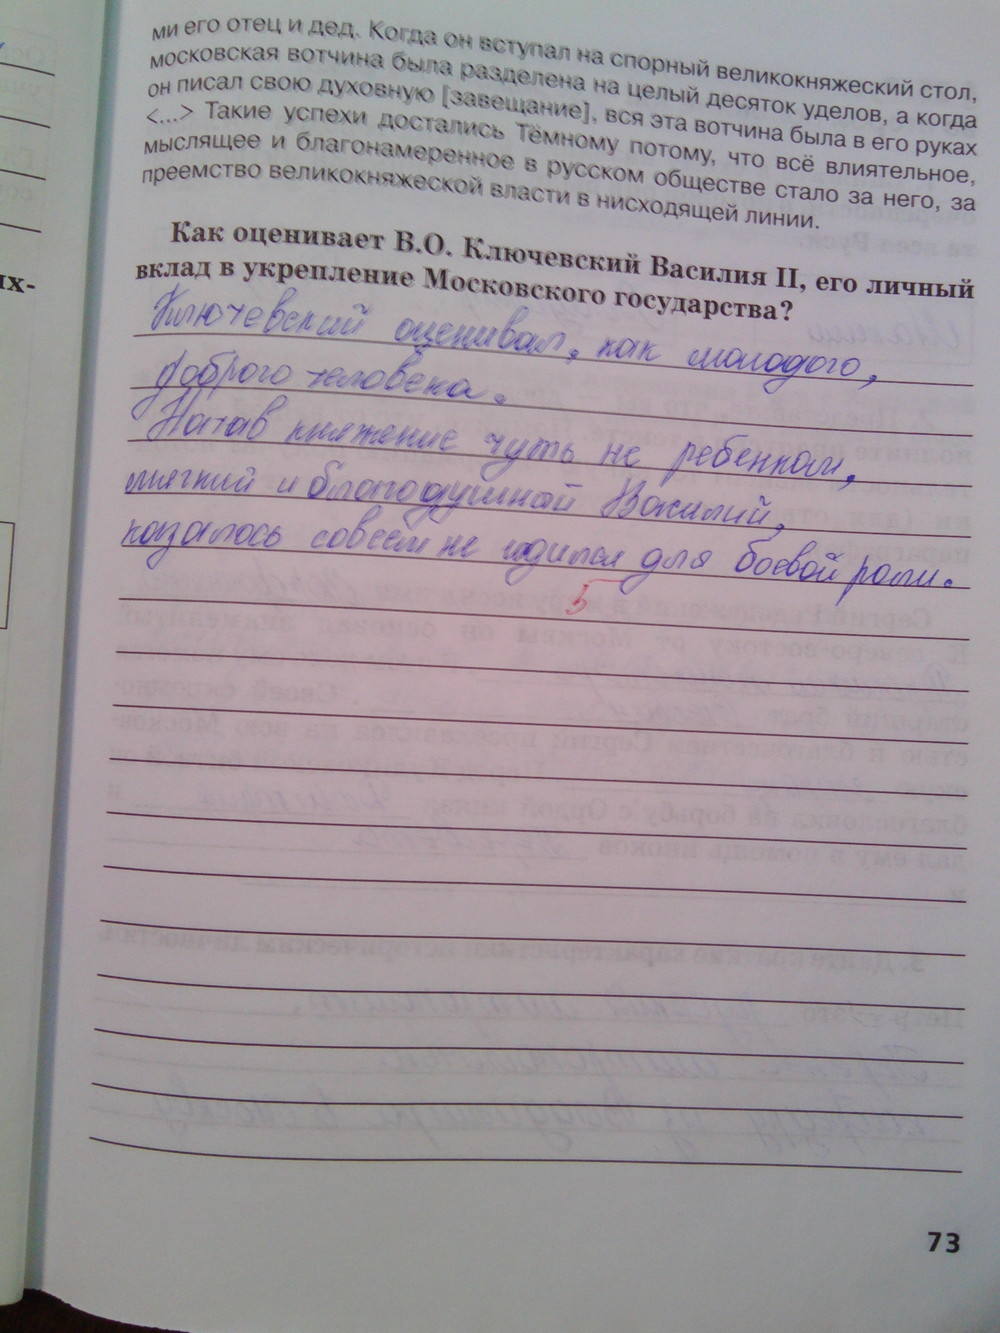 ми его отец и дед. Когда он вступал на спорный великокняжеский стол,
московская вотчина была разделена на целый десяток уделов, а когда
он писал свою духовную [завещание], вся эта вотчина была в его руках
<...> Такие успехи достались Тёмному потому, что всё влиятельное,
мыслящее и благонамеренное в русском обществе стало за него, за
преемство великокняжеской власти в нисходящей линии.
Как оценивает В.О. Ключевский Василия II, его личный
вклад в укрепление Московского государства?
Ключевский оценивал, как молодого,
доброго человека.
Начав княжение чуть не ребенком,
мягкий и благодушный Василий,
казалось совсем не годился для боевой роли.
5
их-
73